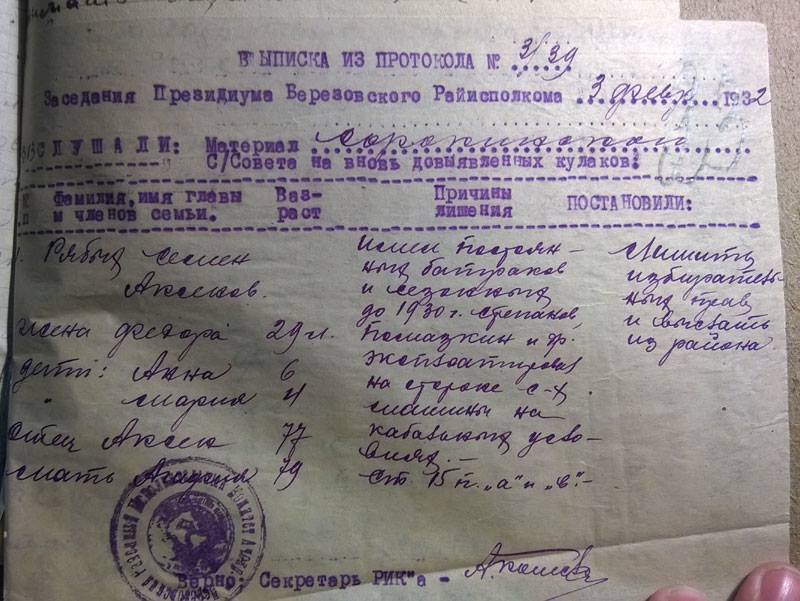 ВЫПИСКА ИЗ ПРОТОКОЛА № 3/39
Заседания Президиума Березовского Райисполкома 3 февр 1932
СЛУШАЛИ: Материал
С/Совета на вновь довыявленных кулаков:
Фамилия, имя главы и членов семьи. Ваз-раст Причины лишения ПОСТАНОВИЛИ:
1. Рябых Семен
Аксенов.
жена Федора 29 л.
дети: Анна 6
" Мария 4
отец Аксен 77
мать 79
Имел постоян-
ных батраков
и сезонных
до 1930 г. Степанов,
и др.
эксплоатировал
на стороне с-х
машины на
кабальных усло-
виях.-
Ст 15 п. "а" и "в".-
Лишить
избиратель
ных прав
и выслать
из района
Верно: Секретарь РИК"а -